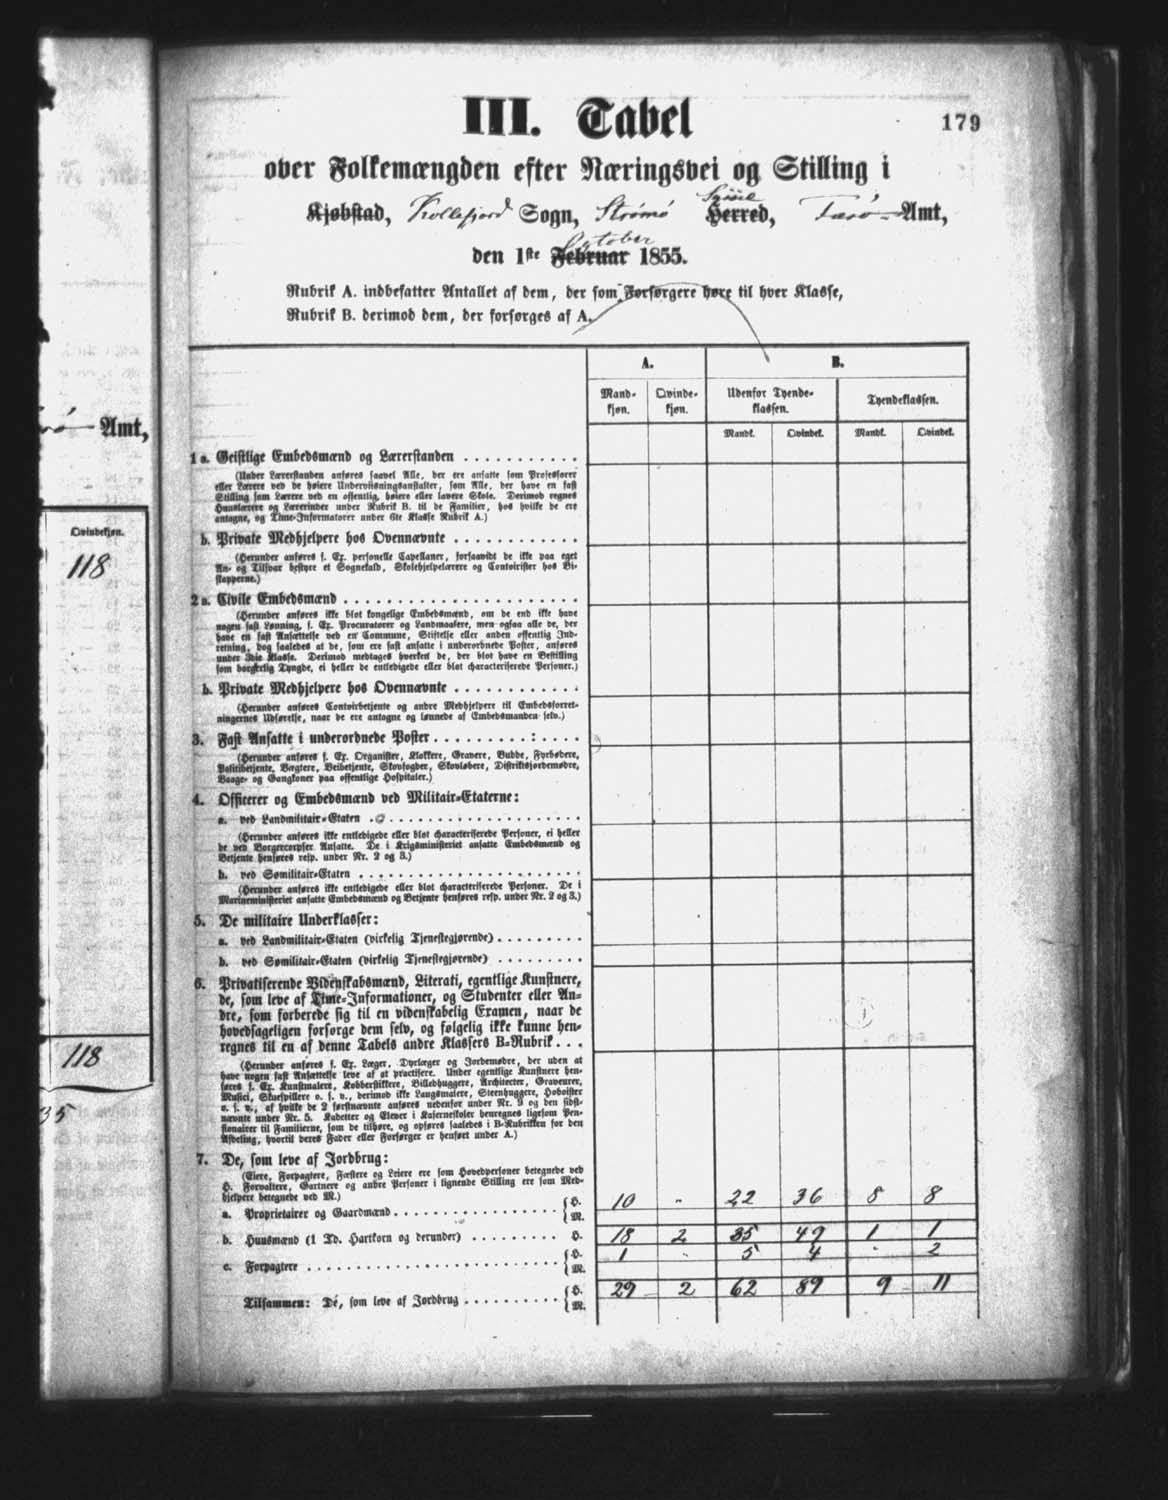 Amt,
Qvindekjøn.
118
118
35
179
III. Tabel
over Folkemængden efter Næringsvei og Stilling i
Kjøbstad, Kollefjord Sogn, Strømø Syssel Herred, Færø Amt,
den 1ste October Februar 1855.
Rubrik A. indbefatter Antallet af dem, der som Forsørgere høre til hver Klasse,
Rubrik B. derimod dem, der forsørges af A.
A. B.
Mandkjøn. Qvindekjøn. Udenfor Tyendeklassen. Tyendeklassen.
Mandk. Qvindek. Mandk. Qvindek.
1 a. Geistlige Embedsmænd og Lærerstanden
(Under Lærerstanden anføres saavel Alle, der ere ansatte som Professorer
eller Lærere ved de høiere Underviisningsanstalter, som Alle, der have en fast
Stilling som Lærere ved en offentlig, høiere eller lavere Skole. Derimod regnes
Huuslærere og Lærerinder under Rubrik B. til de Familier, hos hvilke de ere
antagne, og Time-Informatorer under 6te Klasse Rubrik A.)
b. Private Medhjelpere hos Ovennævnte
(Herunder anføres f. Ex. personelle Capellaner, forsaavidt de ikke paa eget
An- og Tilsvar bestyre et Sognekald, Skolehjelpelærere og Contoirister hos Bi-
skopperne.)
2 a. Civile Embedsmænd
(Herunder anføres ikke blot kongelige Embedsmænd, om de end ikke have
nogen fast Lønning, f. Ex. Procuratorer og Landmaalere, men ogsaa alle de, der
have en fast Ansættelse ved en Commune, Stiftelse eller anden offentlig Ind-
retning, dog saaledes at de, som ere fast ansatte i underordnede Poster, anføres
under 3die Klasse. Derimod medtages hverken de, der blot have en Bestilling
som borgerlig Tyngde, ei heller de entledigede eller blot characteriserede Personer.)
b. Private Medhjelpere hos Ovennævnte
(Herunder anføres Contoirbetjente og andre Medhjelpere til Embedsforret-
ningernes Udførelse, naar de ere antagne og lønnede af Embedsmanden selv.)
3. Fast Ansatte i underordnede Poster
(Herunder anføres f. Ex. Organister, Klokkere, Gravere, Budde, Fyrbødere,
Politibetjente, Vægtere, Veibetjente, Skovfogder, Skovløbere, Distriktsjordemødre,
Vaage- og Gangkoner paa offentlige Hospitaler.)
4. Officerer og Embedsmænd ved Militair-Etaterne:
a. ved Landmilitair-Etaten
(Herunder anføres ikke entledigede eller blot characteriserede Personer, ei heller
de ved Borgercorpser Ansatte. De i Krigsministeriet ansatte Embedsmænd og
Betjente henføres resp. under Nr. 2 og 3.)
b. ved Sømilitair-Etaten
(Herunder anføres ikke entledigede eller blot characteriserede Personer. De i
Marineministeriet ansatte Embedsmænd og Betjente henføres resp. under Nr. 2 og 3.)
5. De militaire Underklasser:
a. ved Landmilitair-Etaten (virkelig Tjenestegjørende)
b. ved Sømilitair-Etaten (virkelig Tjenestegjørende)
6. Privatiserende Videnskabsmænd, Literati, egentlige Kunstnere,
de, som leve af Time-Informationer, og Studenter eller An-
dre, som forberede sig til en videnskabelig Examen, naar de
hovedsageligen forsørge dem selv, og følgelig ikke kunne hen-
regnes til en af denne Tabels andre Klassers B-Rubrik
(Herunder anføres f. Ex. Læger, Dyrlæger og Jordemødre, der uden at
have nogen fast Ansættelse leve af at practisere. Under egentlige Kunstnere hen-
føres f. Ex. Kunstmalere, Kobberstikkere, Billedhuggere, Architecter, Graveurer,
Musici, Skuespillere o. s. v., derimod ikke Laugsmalere, Steenhuggere, Hoboister
o. s. v., af hvilke de 2 førstnævnte anføres nedenfor under Nr. 9 og den sidst-
nævnte under Nr. 5. Kadetter og Elever i Kaserneskoler henregnes ligesom Pen-
sionairer til Familierne, som de tilhøre, og opføres saaledes i B-Rubrikken for den
Afdeling, hvortil deres Fader eller Forsørger er henført under A.)
7. De, som leve af Jordbrug:
(Eiere, Forpagtere, Fæstere og Leiere ere som Hovedpersoner betegnede ved
H. Forvaltere, Gartnere og andre Personer i lignende Stilling ere som Med-
hjelpere betegnede ved M.)
a. Proprietairer og Gaardmænd { H. 10 " 22 36 8 8
M.
b. Huusmænd (1 Td. Hartkorn og derunder) H. 18 2 35 49 1 1
c. Forpagtere { H. 1 " 5 4 " 2
M.
Tilsammen: De, som leve af Jordbrug { H. 29 2 62 89 9 11
M.